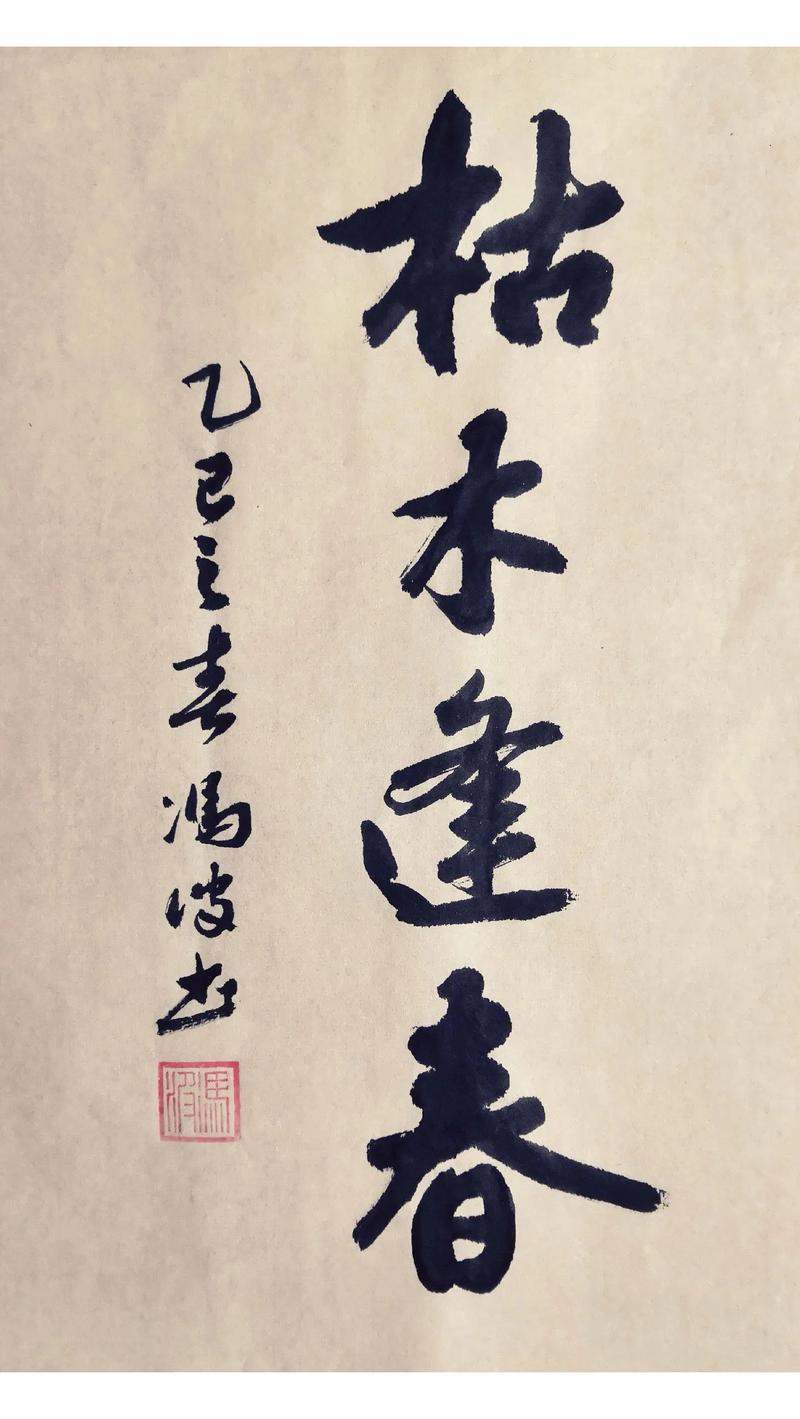 枯木逢春
乙巳之春冯波书